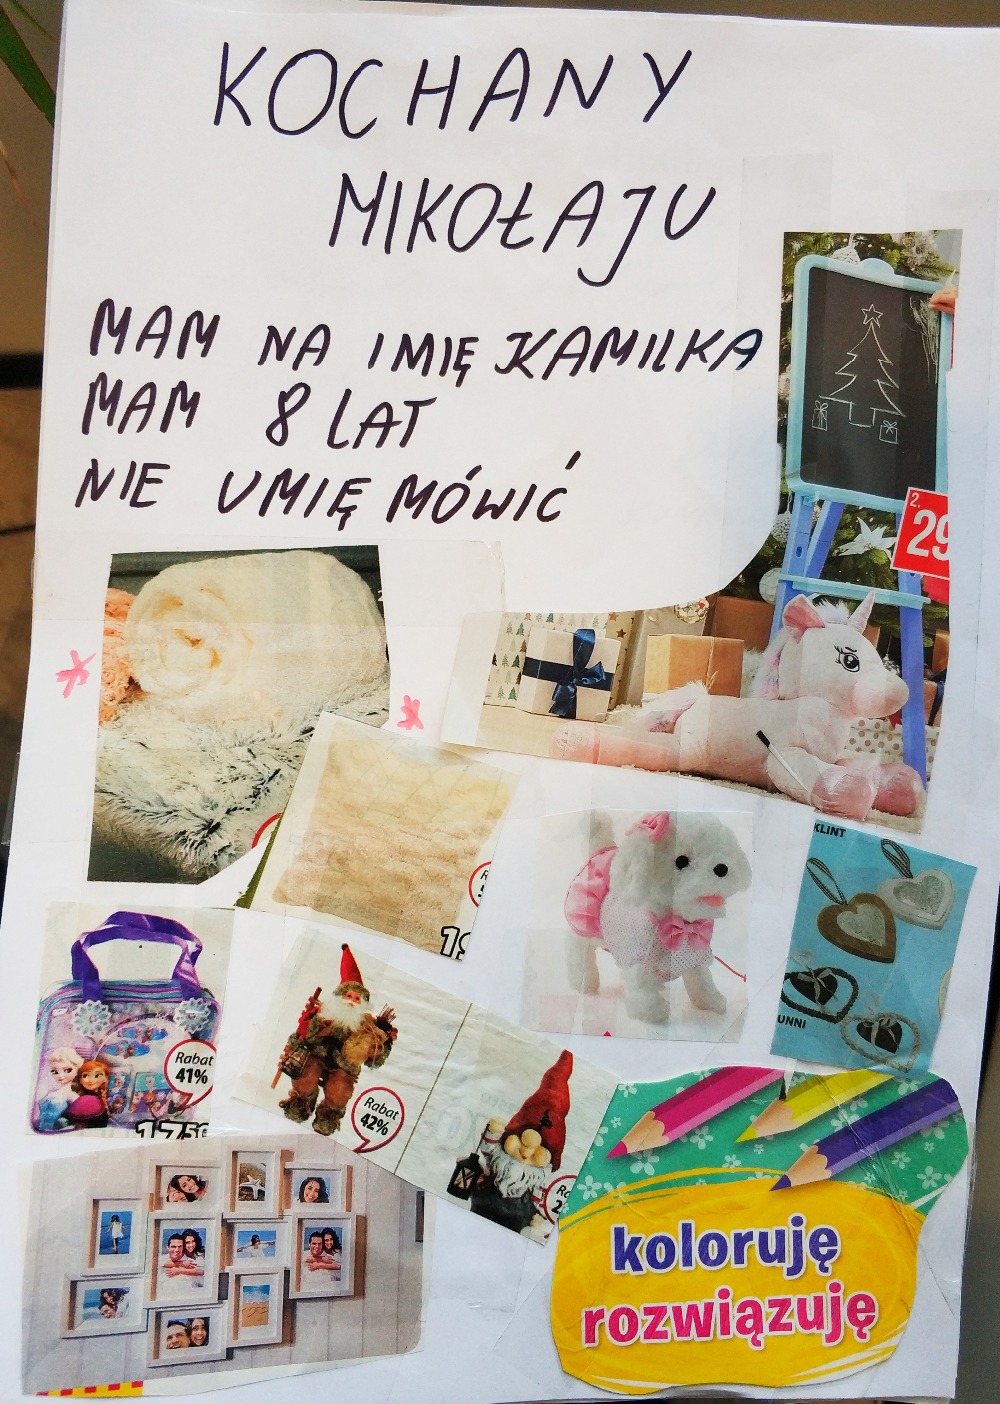 KOCHANY
MIKOŁAJU
MAM NA IMIĘ KAMILKA
MAM 8 LAT
NIE UMIĘ MÓWIĆ
2.
29
KLINT
UNNI
Rabat
41%
17.50
Rabat
42%
koloruję
rozwiązuję